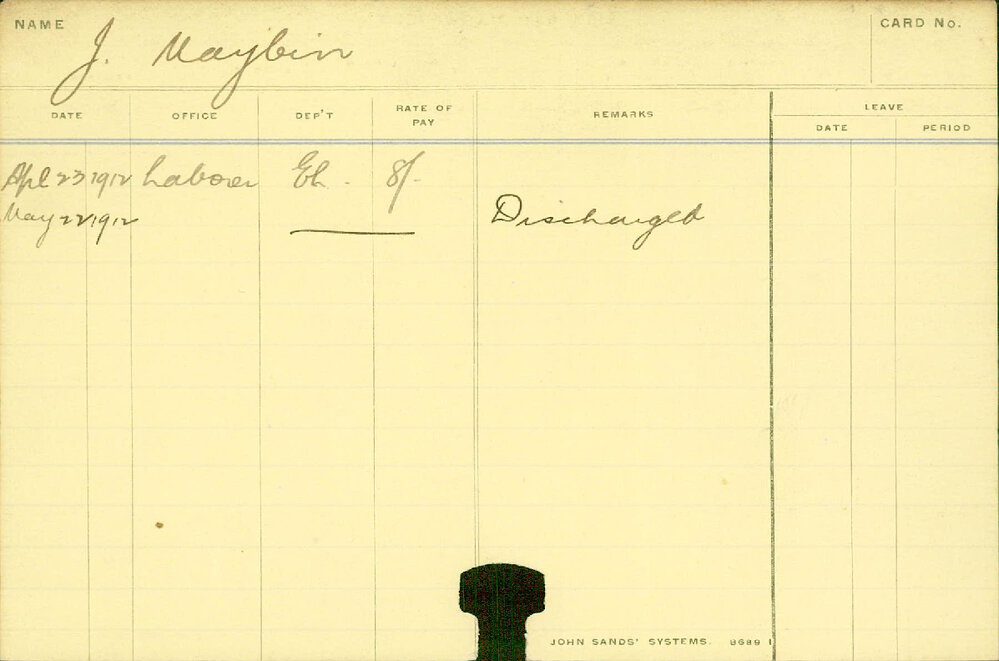 NAME J. Maybin CARD No.
DATE OFFICE DEP'T RATE OF PAY REMARKS LEAVE
DATE PERIOD
Apl 23 1912 Laborer El. 8/-
May 22 1912 Discharged
JOHN SANDS' SYSTEMS. 8689 1